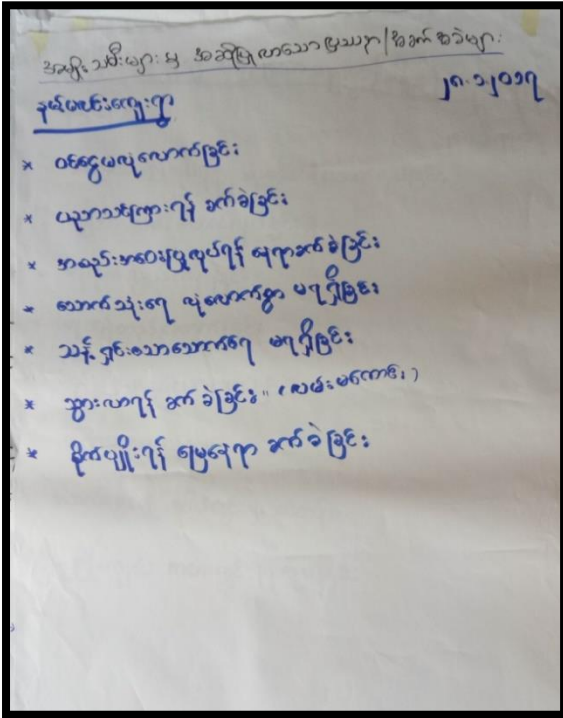 အမျိုးသမီးများမှ အဆိုပြုလာသော ပြဿနာ/အခက်အခဲများ
၂၈.၁.၂၀၁၇
နယ်မဇင်းကျေးရွာ
* ဝင်ငွေမလုံလောက်ခြင်း
* ပညာသင်ကြားရန် ခက်ခဲခြင်း
* အစည်းအဝေးပြုလုပ်ရန် နေရာခက်ခဲခြင်း
* သောက်သုံးရေ လုံလောက်စွာ မရရှိခြင်း
* သန့်ရှင်းသောသောက်ရေ မရရှိခြင်း
* သွားလာရန် ခက်ခဲခြင်း။ (လမ်းမကောင်း)
* စိုက်ပျိုးရန် မြေနေရာ ခက်ခဲခြင်း